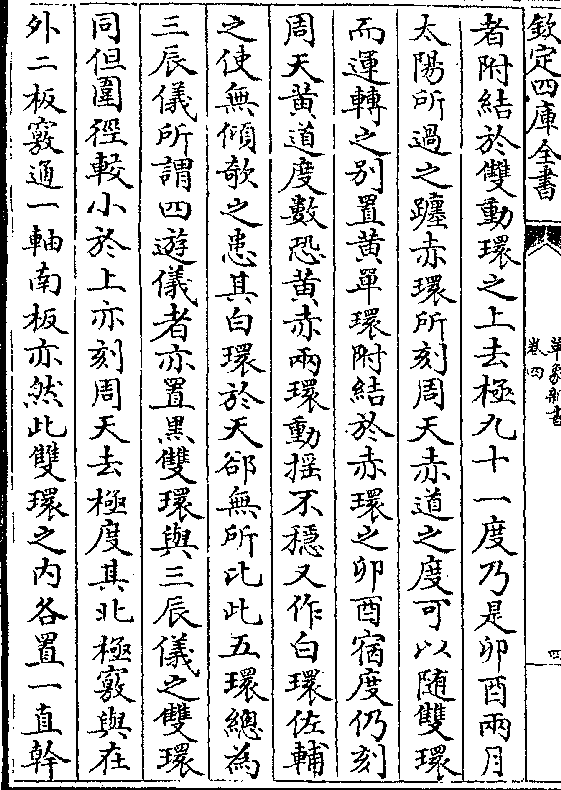 欽定四庫全書
革象新書
卷四
四
者附結於雙動環之上去極九十一度乃是卯酉兩月
太陽所過之躔赤環所刻周天赤道之度可以随雙環
而運轉之别置黄單環附結於赤環之卯酉宿度仍刻
周天黄道度數恐黄赤兩環動揺不穏又作白環佐輔
之使無傾欹之患其白環於天郤無所比此五環總為
三辰儀所謂四遊儀者亦置黒雙環與三辰儀之雙環
同但圍徑較小於上亦刻周天去極度其北極竅與在
外二板竅通一軸南板亦然此雙環之内各置一直幹